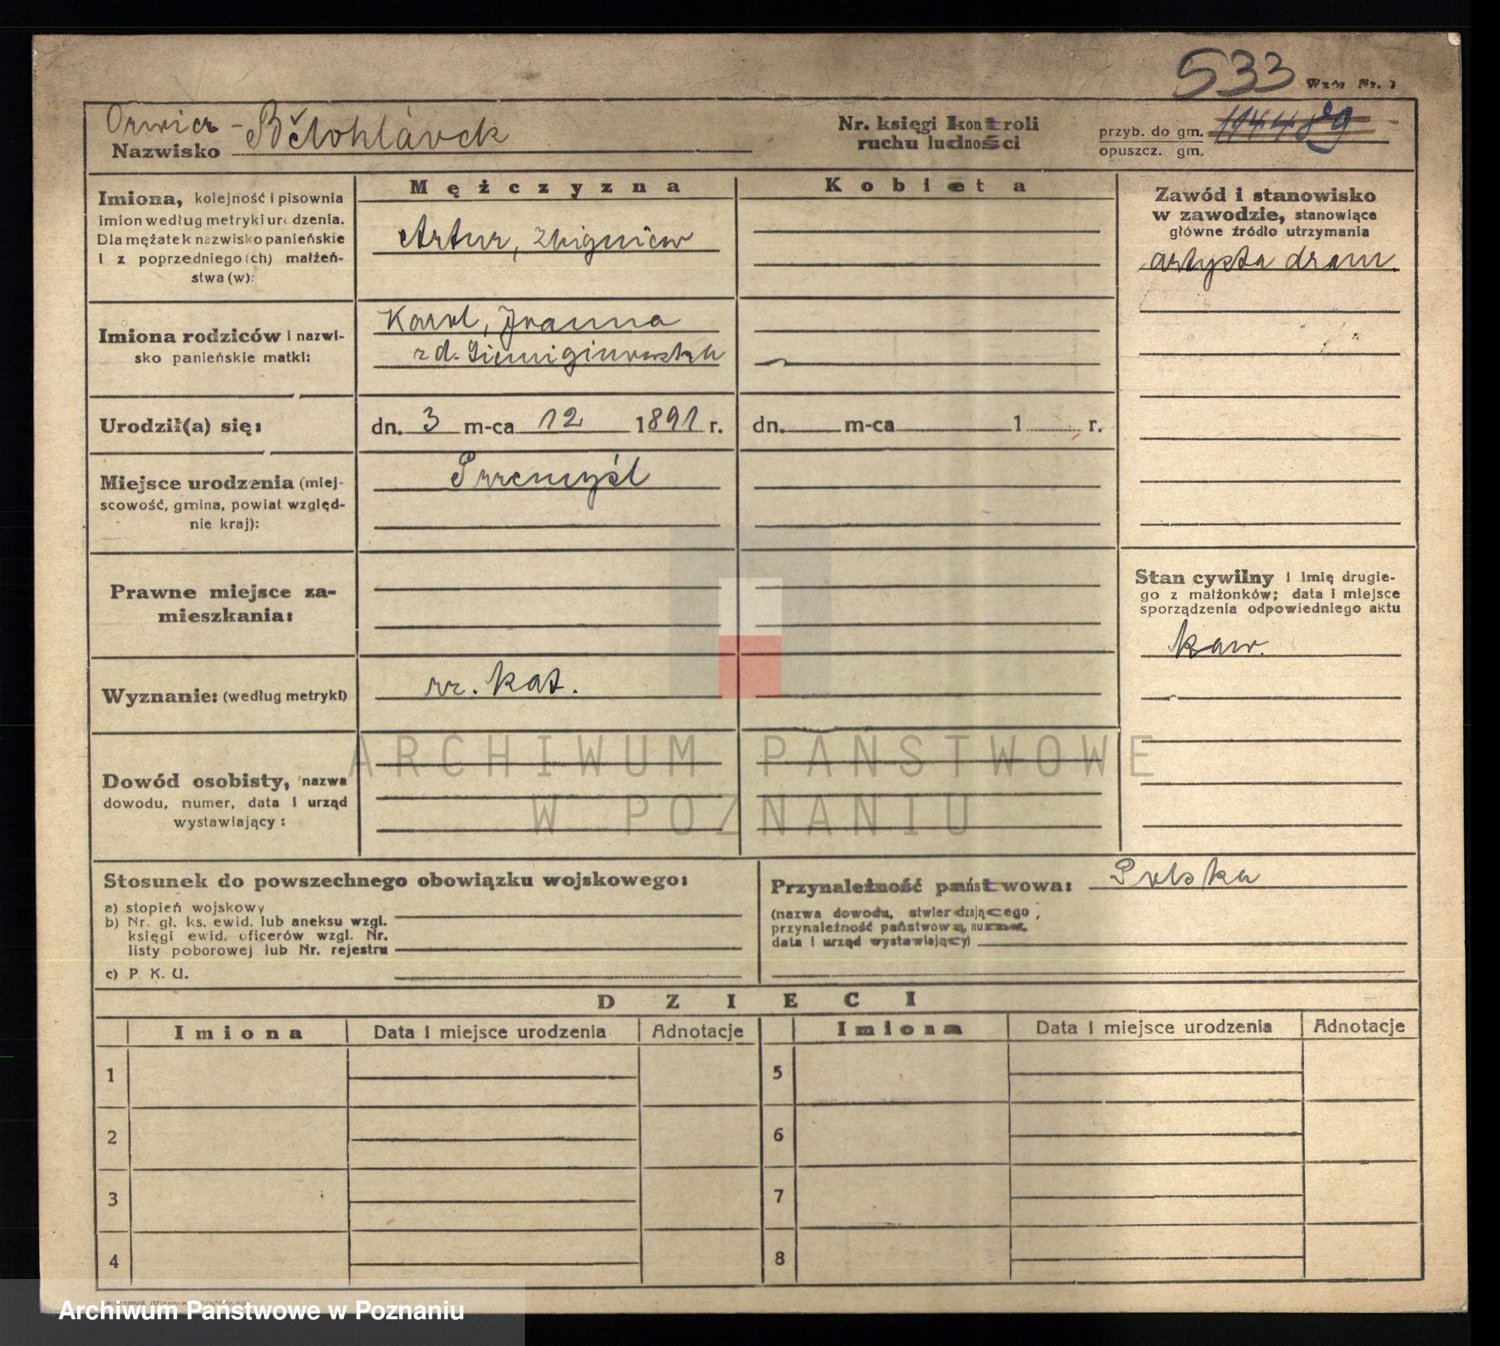 533 Wzór Nr. 1
Orwicz - Bělohlávek
Nazwisko
Nr. księgi kontroli
ruchu ludności
przyb. do gm. 114489
opuszcz. gm.
Imiona, kolejność i pisownia
imion według metryki urodzenia.
Dla mężatek nazwisko panieńskie
i z poprzedniego(ch) małżeń-
stwa(w):
Mężczyzna
Artur, Zbigniew
Kobieta
Zawód i stanowisko
w zawodzie, stanowiące
główne źródło utrzymania
artysta dram.
Imiona rodziców i nazwi-
sko panieńskie matki:
Karol, Joanna
z d.
Urodził(a) się:
dn. 3 m-ca 12 1891 r.
dn. m-ca 1 r.
Miejsce urodzenia (miej-
scowość, gmina, powiat względ-
nie kraj):
Przemyśl
Prawne miejsce za-
mieszkania:
Stan cywilny i imię drugie-
go z małżonków; data i miejsce
sporządzenia odpowiedniego aktu
kaw.
Wyznanie: (według metryki)
rz. kat.
Dowód osobisty, nazwa
dowodu, numer, data i urząd
wystawiający:
ARCHIWUM PAŃSTWOWE
W POZNANIU
Stosunek do powszechnego obowiązku wojskowego:
a) stopień wojskowy
b) Nr. gł. ks. ewid. lub aneksu wzgl.
księgi ewid. oficerów wzgl. Nr.
listy poborowej lub Nr. rejestru
c) P. K. U.
Przynależność państwowa: Polska
(nazwa dowodu, stwierdzającego
przynależność państwową, numer,
data i urząd wystawiający)
DZIECI
Imiona Data i miejsce urodzenia Adnotacje Imiona Data i miejsce urodzenia Adnotacje
1 5
2 6
3 7
4 8
Archiwum Państwowe w Poznaniu